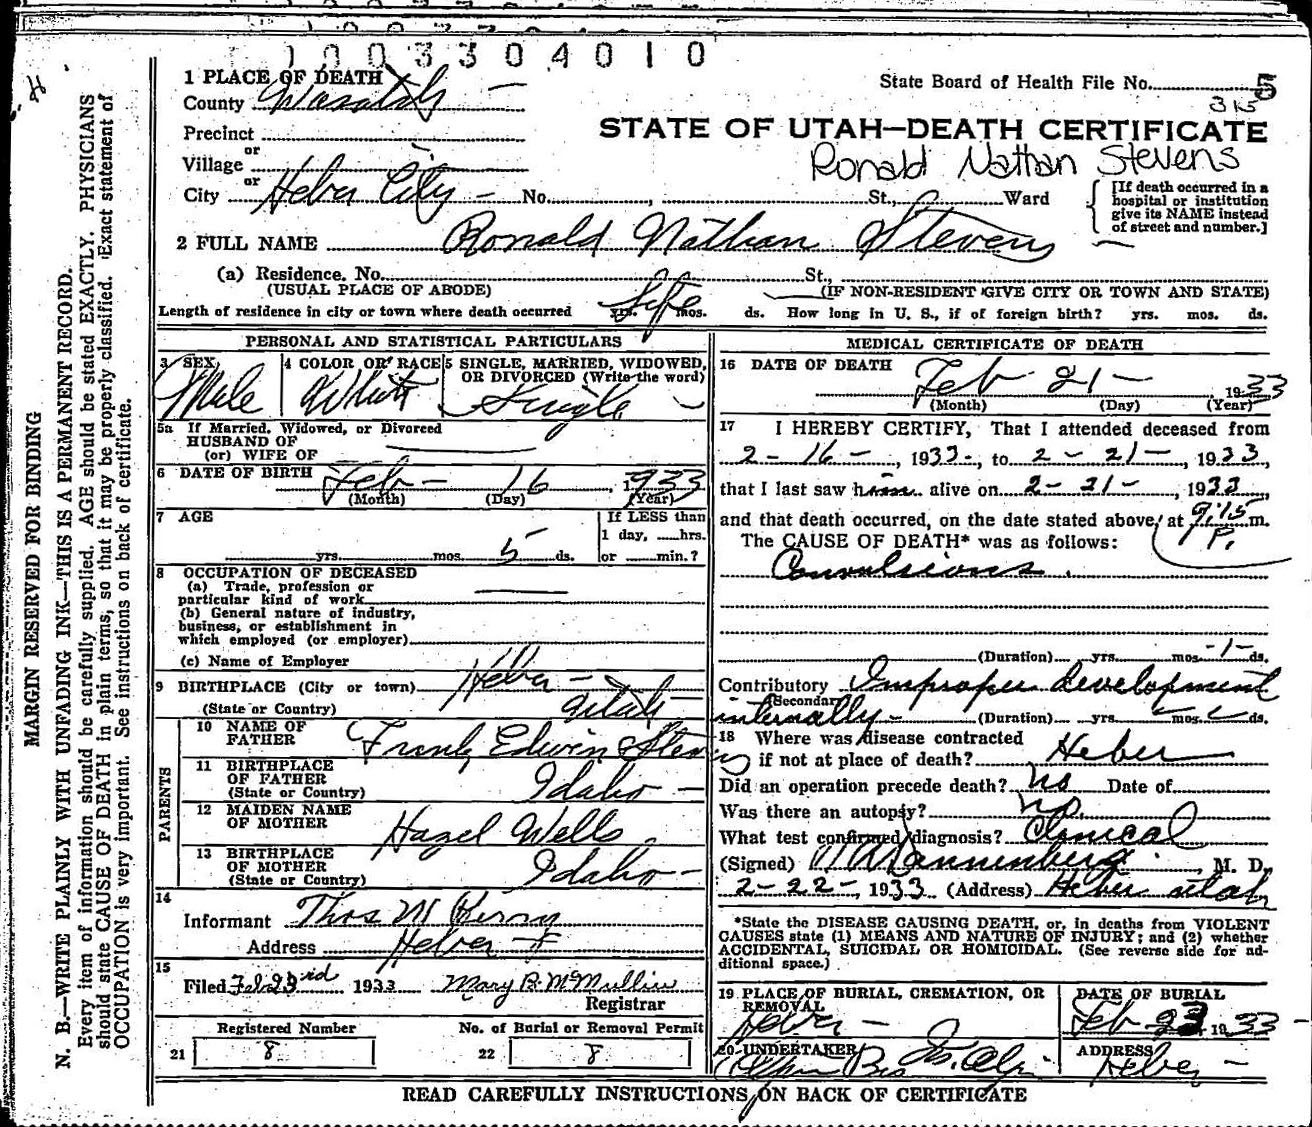 1003304010
1 PLACE OF DEATH
County Wasatch
State Board of Health File No. 5
315
Precinct
or
Village
or
City Heber City No. , St., Ward
STATE OF UTAH—DEATH CERTIFICATE
Ronald Nathan Stevens
[If death occurred in a
hospital or institution
give its NAME instead
of street and number.]
2 FULL NAME Ronald Nathan Stevens
(a) Residence. No. St.,
(USUAL PLACE OF ABODE) (IF NON-RESIDENT GIVE CITY OR TOWN AND STATE)
Length of residence in city or town where death occurred Life yrs. mos. ds. How long in U. S., if of foreign birth? yrs. mos. ds.
PERSONAL AND STATISTICAL PARTICULARS
3 SEX Male
4 COLOR OR RACE White
5 SINGLE, MARRIED, WIDOWED,
OR DIVORCED (Write the word)
Single
5a If Married, Widowed, or Divorced
HUSBAND OF
(or) WIFE OF
6 DATE OF BIRTH Feb - 16, 1933
(Month) (Day) (Year)
7 AGE
yrs. mos. 5 ds.
If LESS than
1 day, hrs.
or min.?
8 OCCUPATION OF DECEASED
(a) Trade, profession or
particular kind of work
(b) General nature of industry,
business, or establishment in
which employed (or employer)
(c) Name of Employer
9 BIRTHPLACE (City or town) Heber -
(State or Country) Utah -
PARENTS
10 NAME OF
FATHER Frank Edwin Stevens
11 BIRTHPLACE
OF FATHER
(State or Country) Idaho -
12 MAIDEN NAME
OF MOTHER Hazel Wells
13 BIRTHPLACE
OF MOTHER
(State or Country) Idaho -
14
Informant Thos M
Address Heber
15
Filed Feb 23rd 1933 Mary B. McMullin
Registrar
Registered Number No. of Burial or Removal Permit
21 8 22 8
MEDICAL CERTIFICATE OF DEATH
16 DATE OF DEATH
Feb 21 - 1933
(Month) (Day) (Year)
17 I HEREBY CERTIFY, That I attended deceased from
2 - 16 -, 1933, to 2 - 21 -, 1933,
that I last saw him alive on 2 - 21 -, 1933,
and that death occurred, on the date stated above, at 9:15 m.
P.
The CAUSE OF DEATH* was as follows:
Convulsions.
(Duration) yrs. mos. -1- ds.
Contributory Improper development
(Secondary)
internally - (Duration) yrs. mos. ds.
18 Where was disease contracted
if not at place of death? Heber
Did an operation precede death? no Date of
Was there an autopsy? no.
What test confirmed diagnosis? Clinical
(Signed) Dannenberg M. D.
2 - 22 -, 1933 (Address) Heber Utah
*State the DISEASE CAUSING DEATH, or, in deaths from VIOLENT
CAUSES state (1) MEANS AND NATURE OF INJURY; and (2) whether
ACCIDENTAL, SUICIDAL OR HOMICIDAL. (See reverse side for ad-
ditional space.)
19 PLACE OF BURIAL, CREMATION, OR
REMOVAL
Heber -
DATE OF BURIAL
Feb 23 1933
20 UNDERTAKER
ADDRESS
Heber -
READ CAREFULLY INSTRUCTIONS ON BACK OF CERTIFICATE
MARGIN RESERVED FOR BINDING
N. B.—WRITE PLAINLY WITH UNFADING INK—THIS IS A PERMANENT RECORD.
Every item of information should be carefully supplied. AGE should be stated EXACTLY. PHYSICIANS
should state CAUSE OF DEATH in plain terms, so that it may be properly classified. Exact statement of
OCCUPATION is very important. See instructions on back of certificate.